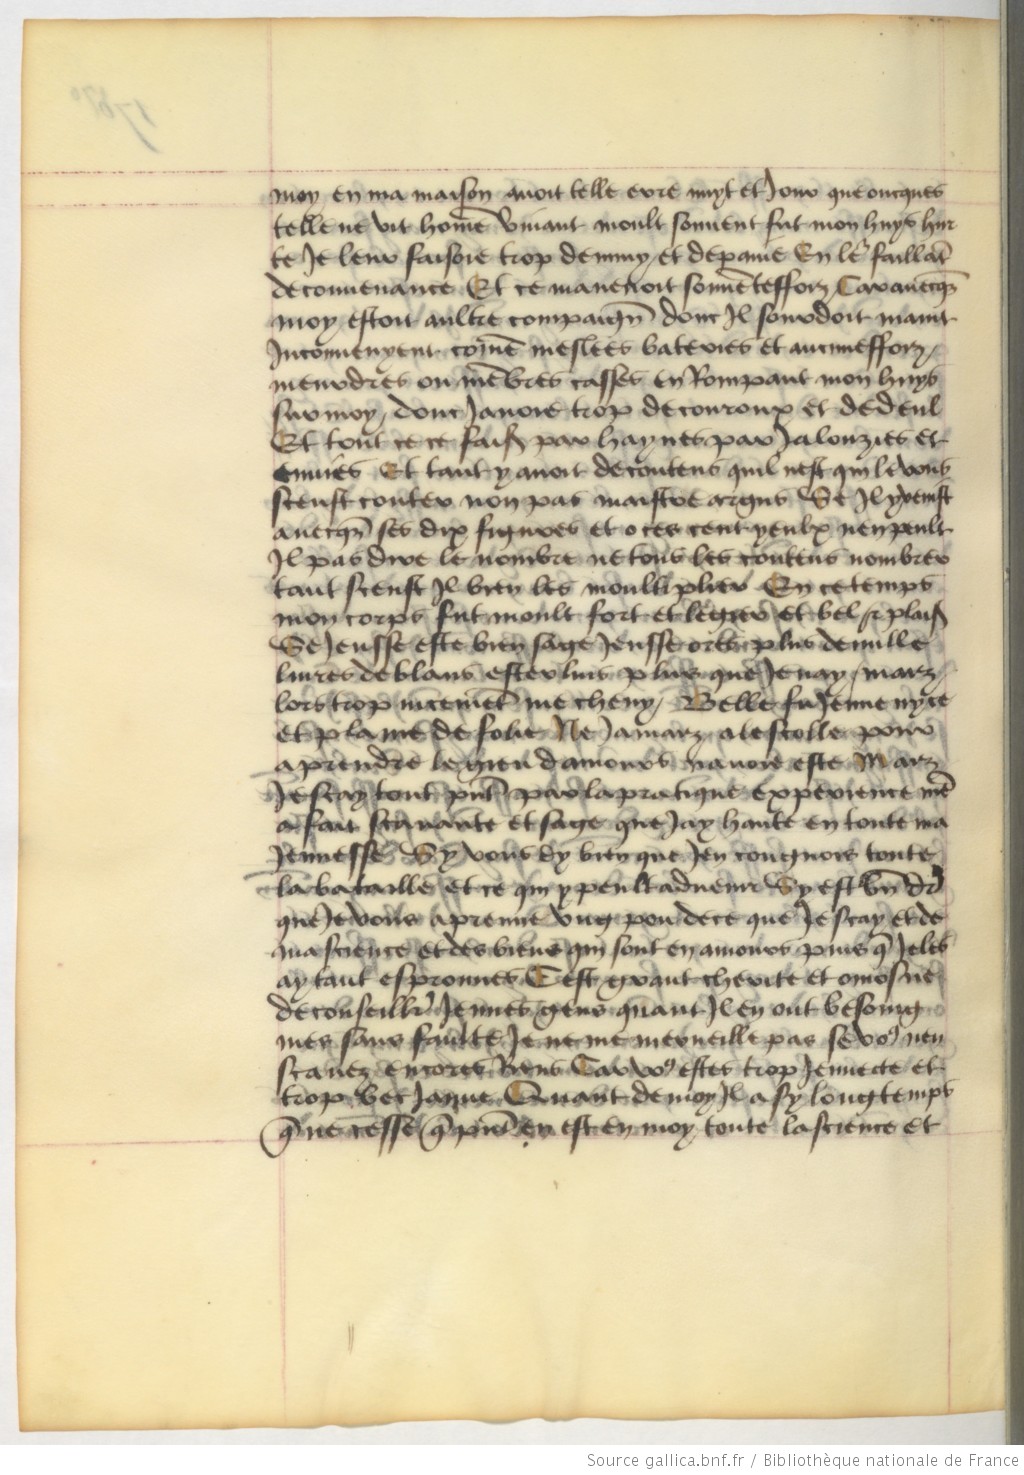 moy en ma maison avoit telle eure nuyt et Jour que oncques
telle ne vit home vivant moult souvent fut mon huys hur
te Je leur faisoie trop dennuy et de paine En le faillat
de convenance Et ce m avenoit souvet Car avecq
moy estoit aultre compaign donc Il sourdoit maint
Inconvenyent come meslees bateries et
meurdres ou mebres casses en Rompant mon huys
sur moy / donc Javoie trop de couroux et de deul
Et tout ce ce par haynes par Jalouzies et
envies Et tant y avoit de contens quil nest qui le vous
sceust conter non pas maistre argus Se Il y venist
avecq ses dix figures et o ces cent yeulx nen peult
Il pas dire le nombre ne tous les contens nombrer
tant sceust Il bien les moulti plier En ce temps
mon corps fut moult fort et legier et bel
Se Jeusse este bien sage Jeusse ores plus de mille
livres de blans esterlins plus que Je nay / marz /
lors trop nicemet me cheny / Belle fu Jenne nyce
et plaine de folie Ne Jamarz a lescolle pour
aprendre le gieu damours navoie este Marz
Je scay tout par la pratique experience me
a fait scavante et sage que Jay hante en toute ma
Jennesse Sy vous dy bien que Jen congnois toute
la bataille et ce qui y peult advenir Sy est
que Je vous aprenne ung pou de ce que Je scay et de
ma science et des biens qui sont en amours puis q Je les
ay tant esprouves Cest grant cherite et omosne
de conseillr Jennes gens quant Il en ont besoing
mes sans faulte Je ne me merveille pas se vo9 nen
scavez encores Riens Car vo9 estes trop Jennete et
trop bec Jaune Quant de moy Il a sy longtemps
q ne cesse q en est en moy toute la science et
Source gallica.bnf.fr / Bibliothèque nationale de France